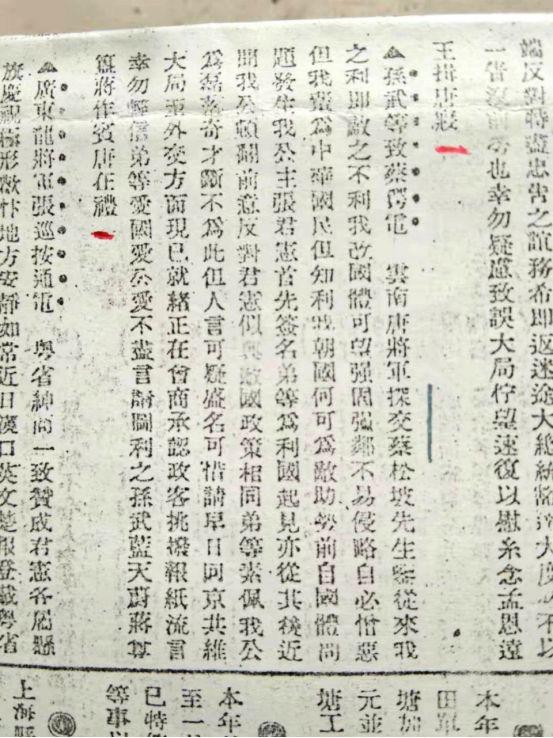 端反對時盡忠告之誼務希即返迷途大總統將大度不以
一省沒前也幸勿疑慮致誤大局佇望速復以慰糸念孟恩遠
王揖唐
▲孫武等致蔡鍔電　雲南唐將軍探交蔡松坡先生鑒從來我
之利即敵之不利我改國體可望强固强鄰不易侵略自必憎惡
但我輩爲中華國民但知利我朝國何可爲敵助勢前自國體問
題發生我公主張君憲首先簽名弟等爲利國起見亦從其後近
聞我公頓翻前意反對君憲似與敵國政策相同弟等素佩我公
爲磊落奇才斷不爲此但人言可疑盛名可惜請早日回京共維
大局至外交方面現已就緒正在會商承認政客挑撥報紙流言
幸勿輕信弟等愛國愛公愛不盡言謝圖利之孫武藍天蔚蔣尊
簋蔣作賓唐在禮
▲廣東龍將軍張巡按通電　粤省紳商一致贊成君憲各屬懸
旗慶祝極形歡忭地方安靜如常近日漢口英文楚報登載粤省
本年
田單
塘加
元並
塘工
本年
至一
已特
等事以
上海縣